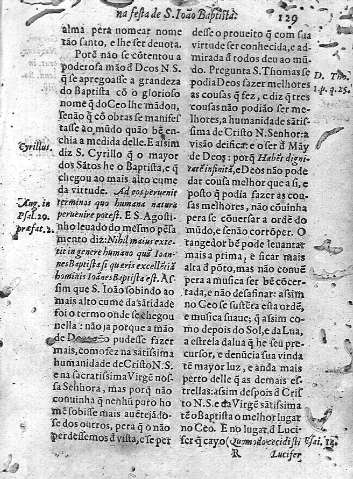 na festa de S. Ioão Baptista.
129
alma pera nomear nome
tão santo, e lhe ser deuota.
Porē não se cōtentou a
poderosa mão d̃ Deos N. S.
q̃ se apregoasse a grandeza
do Baptista cō o glorioso
nome q̃ do Ceo lhe mādou,
senão q̃ cō obras se manifes
tasse ao mūdo quão bē en-
chia a medida delle. E assim
diz S. Cyrillo q̃ o mayor
dos Sātos he o Baptista, e q̃
chegou ao mais alto cume
da virtude. Ad eos peruenit
terminos quo humana natura
peruenire potest. E S. Agosti-
nho leuado do mesmo pēsa
mento diz: Nihil maius exte-
tit in genere humano quā Ioan-
nes Baptista si quæris excellētiā
hominis Ioānes Baptista est. As
sim que S. Ioão sobindo ao
mais alto cume da sātidade
foi o termo onde se chegou
nella: não ja porque a mão
de pudesse fazer
mais, como fez na sātissima
humanidade de Cristo N. S
e na sacratissima Virgē nos-
sa Sehhora, mas porq̃ não
conuinha q̃ nenhū puro ho
mē sobisse mais auētejādo-
se dos outros, pera q̃ o não
perdessemos d̃ vista, e se per
Cyrillus.
Aug. in
Psal. 29.
præfat. 2.
desse o proueito q̃ com sua
virtude ser conhecida, e ad-
mirada d̃ todos deu ao mū-
do. Pregunta S. Thomas se po
dia Deos fazer melhores
as cousas q̃ fez, e diz q̃ tres
cousas não podião ser me-
lhores, a humanidade sātis
sima de Cristo N. Senhor: a
visão deifica: e o ser d̃ Mãy
de Deos: porq̃ Habēt digni-
tatē infinitā, e Deos não pode
dar cousa melhor que a si, e
posto q̃ podia fazer as cou-
sas melhores, não cōuinha
pera se cōuersar a ordē do
mūdo, e senão corrōper. O
tangedor bē pode leuantar
mais a prima, e ficar mais
alta d̃ pōto, mas não conuē
pera a musica ser bē cōcer-
tada, e não desafinar: assim
no Ceo se sustēta esta ordē,
e musica suaue; q̃ assim co-
mo depois do Sol, e da Lua,
a estrella dalua q̃ he seu pre-
cursor, e denūcia sua vinda
tē mayor luz, e anda mais
perto delle q̃ as demais es-
trellas: assim despois d̃ Cris
to N. S. e da Virgē sātissima
tē o Baptista o melhor lugar
no Ceo. E no lugar, d̃ Luci-
fer q̃ cayo (Quomodo cecidisti
D. Tho.
1. p. q. 25.
Esai. 14.
R
Lucifer